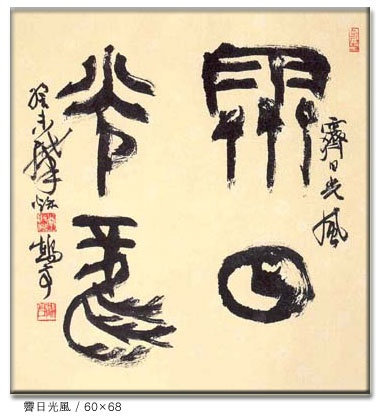 霽日光風
霽日
光風
癸未
霽日光風 / 60×68